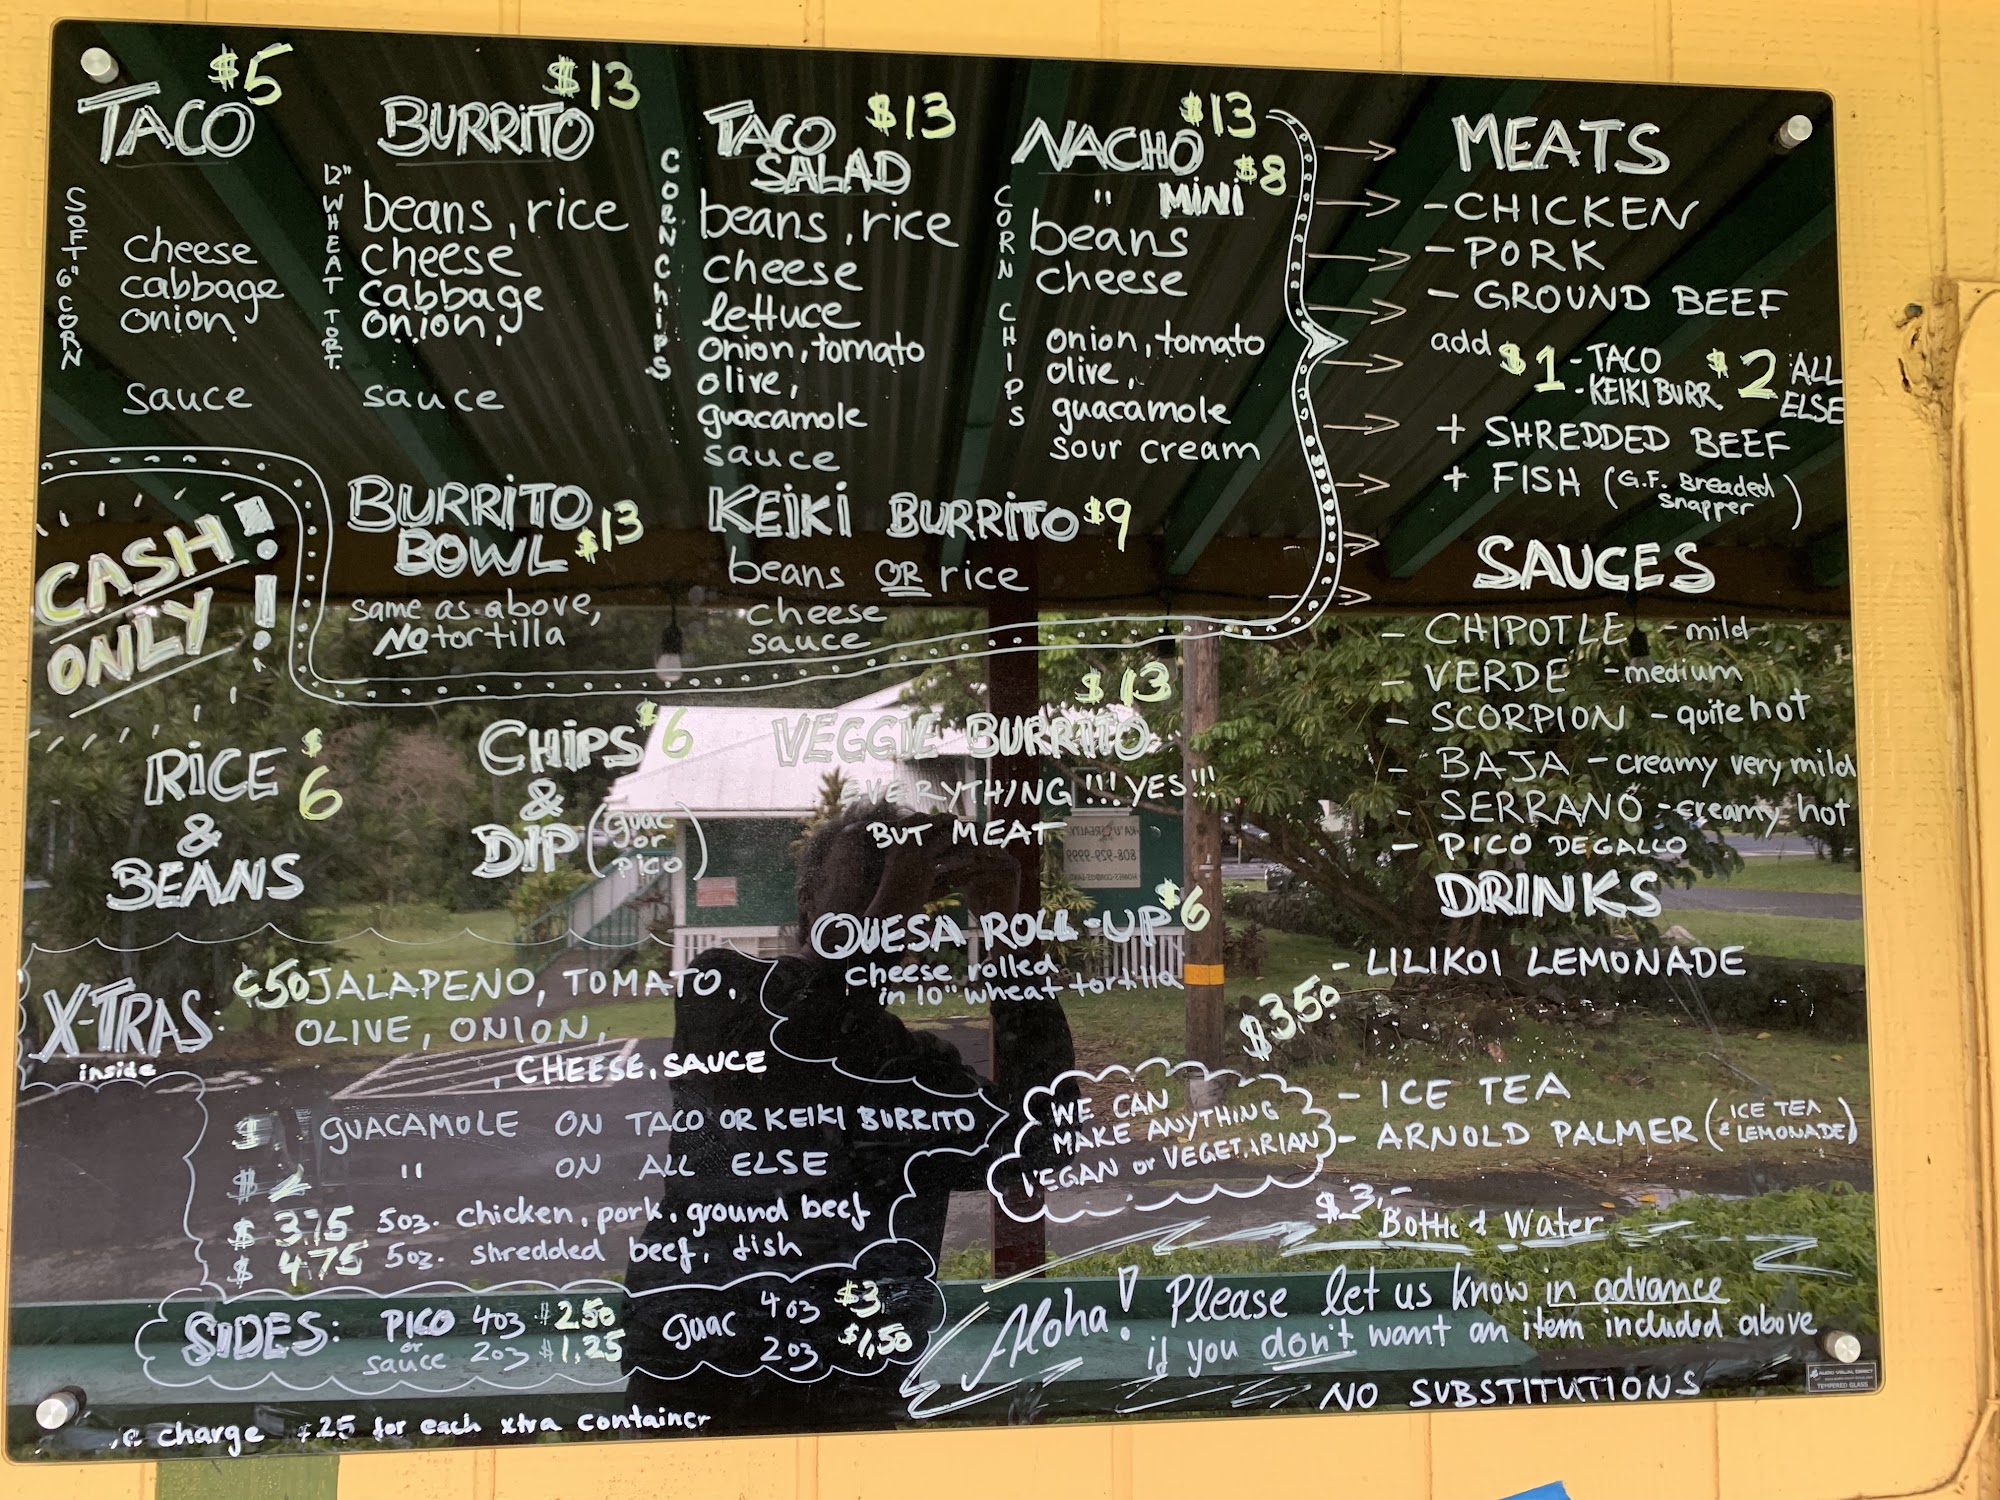 TACO $5
SOFT 6" CORN
cheese
cabbage
onion,
sauce
BURRITO $13
12" WHEAT TORT.
beans, rice
cheese
cabbage
onion,
sauce
TACO $13
SALAD
CORN CHIPS
beans, rice
cheese
lettuce
onion, tomato
olive,
guacamole
sauce
NACHO $13
" MINI $8
CORN CHIPS
beans
cheese
onion, tomato
olive,
guacamole
sour cream
CASH!
ONLY!
BURRITO
BOWL $13
same as above,
NO tortilla
KEIKI BURRITO $9
beans OR rice
cheese
sauce
MEATS
- CHICKEN
- PORK
- GROUND BEEF
add $1 - TACO $2 ALL
- KEIKI BURR. ELSE
+ SHREDDED BEEF
+ FISH (G.F. Breaded
snapper)
SAUCES
- CHIPOTLE - mild
- VERDE - medium
- SCORPION - quite hot
- BAJA - creamy very mild
- SERRANO - creamy hot
- PICO DEGALLO
DRINKS
- LILIKOI LEMONADE
$3.50
- ICE TEA
- ARNOLD PALMER (ICE TEA
& LEMONADE)
$3,-
Bottled Water
RICE $6
&
BEANS
CHIPS $6
&
DIP (guac
or
pico)
$13
VEGGIE BURRITO
EVERYTHING!!! YES!!!
BUT MEAT
KA'U REALTY
808-929-9999
QUESA ROLL-UP $6
cheese rolled
in 10" wheat tortilla
X-TRAS:
inside
¢50 JALAPENO, TOMATO,
OLIVE, ONION,
, CHEESE, SAUCE
$ GUACAMOLE ON TACO OR KEIKI BURRITO
$2 " ON ALL ELSE
$3.75 5oz. chicken, pork, ground beef
$4.75 5oz. shredded beef, fish
WE CAN
MAKE ANYTHING
VEGAN or VEGETARIAN
SIDES: PICO 4oz $2.50
or
sauce 2oz $1,25
guac 4oz $3
2oz $1,50
Aloha! Please let us know in advance
if you don't want an item included above
NO SUBSTITUTIONS
charge ¢25 for each xtra container
TEMPERED GLASS